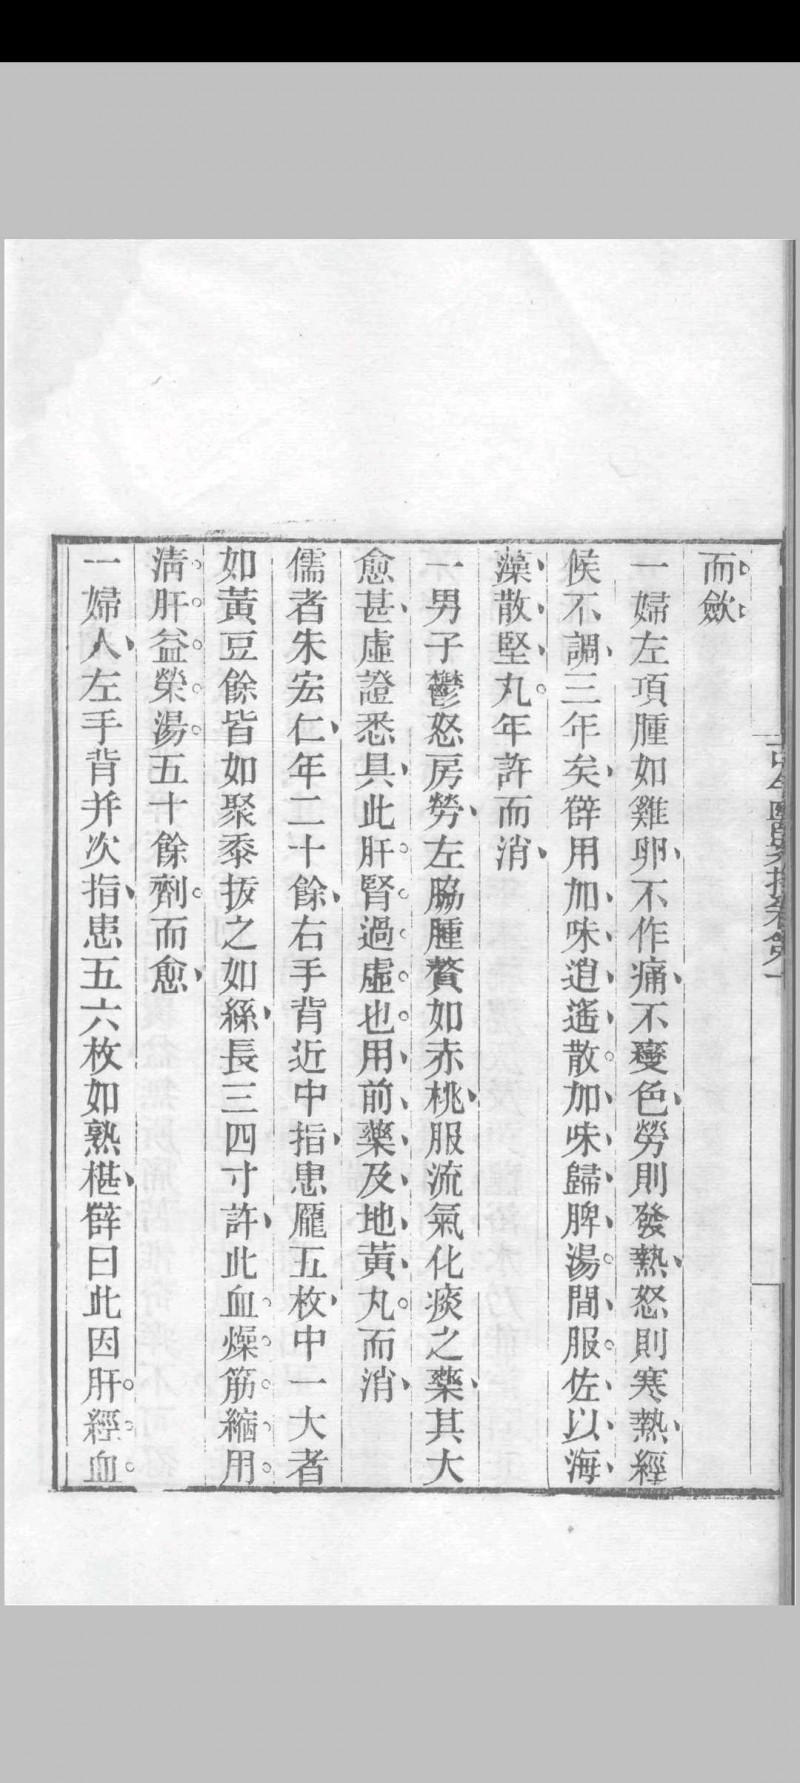 而斂
一婦左項腫如雞卵不作痛不變色勞則發熱怒則寒熱經
候不調三年矣薛用加味逍遙散加味歸脾湯間服佐以海
藻散堅丸年許而消
一男子鬱怒房勞左脇腫贅如赤桃服流氣化痰之藥其大
愈甚虛證悉具此肝腎過虛也用前藥及地黃丸而消
儒者朱宏仁年二十餘右手背近中指患疣五枚中一大者
如黃豆餘皆如聚黍拔之如絲長三四寸許此血燥筋縮用
清肝益榮湯五十餘劑而愈
一婦人左手背并次指患五六枚如熟椹薛曰此因肝經血
古今醫案按卷第十